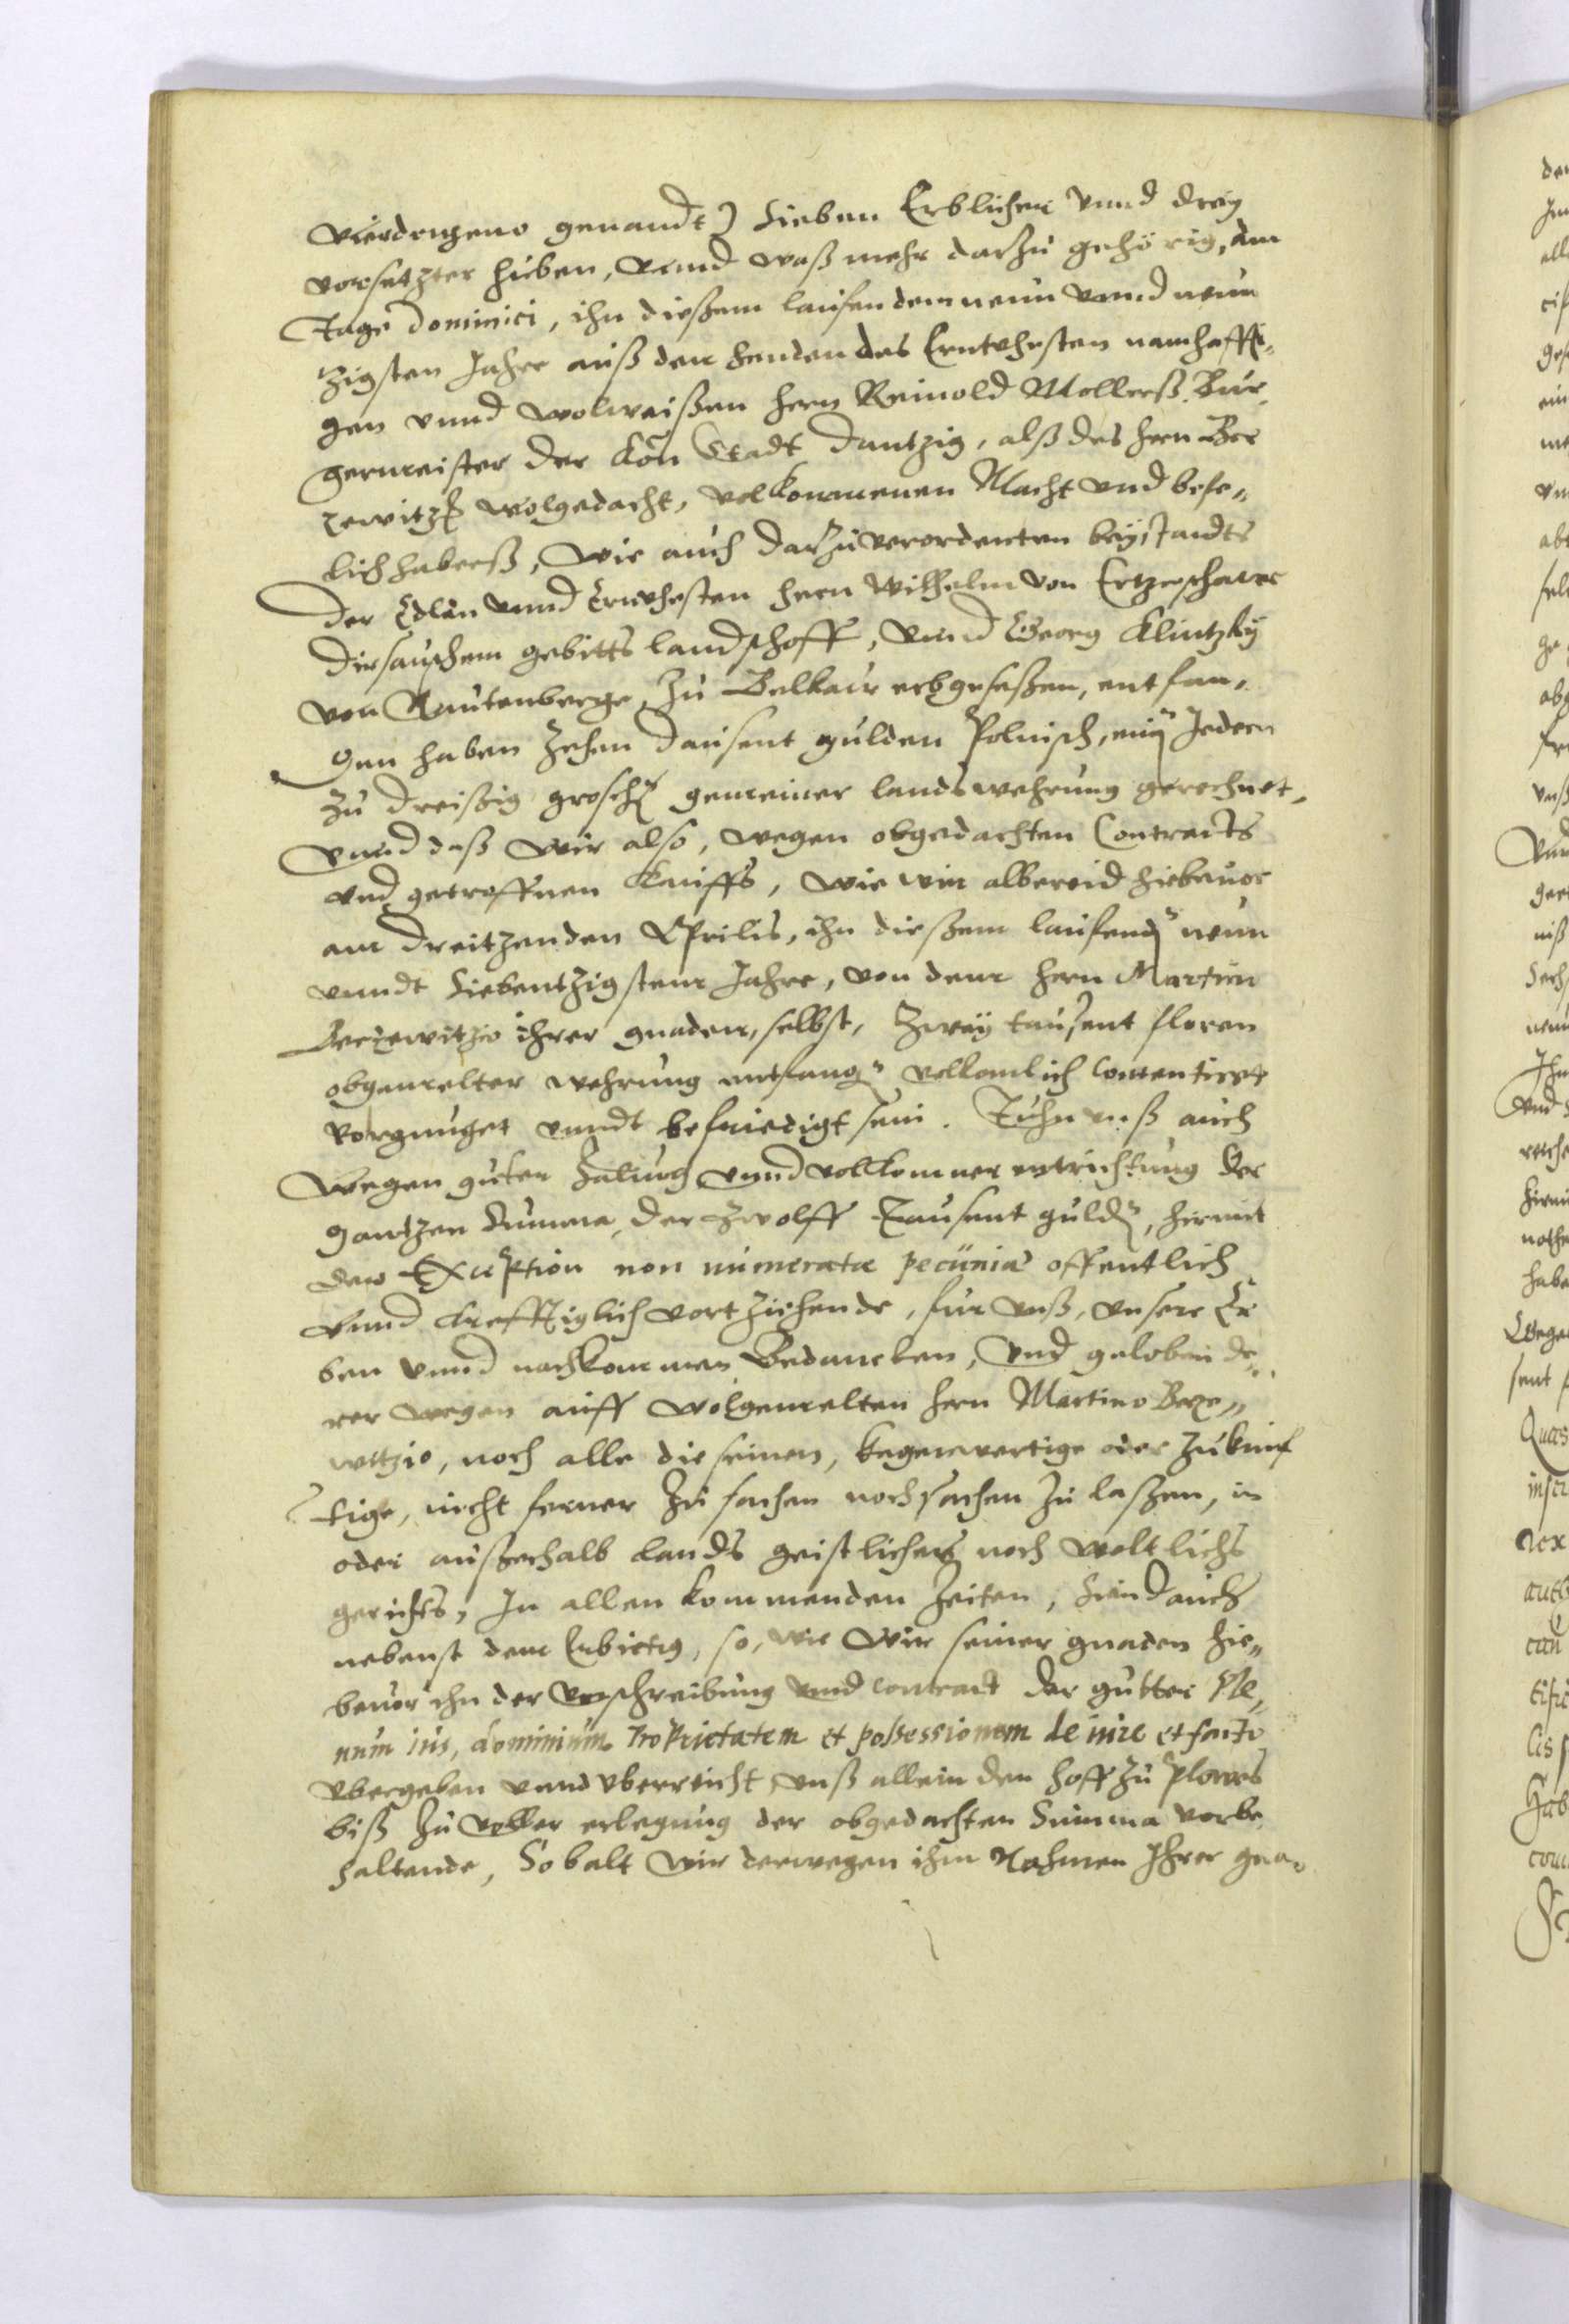 genandt) Sieben Erblichen vnnd drey
vorsatzter huben, vnnd waß mehr darzu gehörig, am
Tage Dominici, ihn dießem laufendem neun vnnd neun
zigsten Jahre auß den henden des Erntvhesten namhaffti,
gen vnnd wolweißen hern Reinold Mollerß Bur,
germeister der Kön Stadt Dantzig, alß des hern Ber
zewitz wolgedacht, volkommenen Macht vnd befe„
lichhaberß, wie auch darzu verordenten beystandts
der Edlen vnnd Ernvhesten hern Wilhelm von
Dirsauschem gebitts landschoff, vnnd Georg Klintzky
von Rautenberge zu Belkaw erbgeseßen, entfan,
gen haben zehen dausent gulden Polnisch, ein Jedern
zu dreißig grosch gemeiner landswehrung gerechnet,
vnnd daß wir also, wegen obgedachten Contracts
vnd getroffnen Kauffs, wie wir albereid hiebeuor
am dreitzenden Aprilis, ihn dießem laufend neun
vnndt Siebentzigstem Jahre, von dem hern Martin
Berzewitzio ihrer gnaden, selbst, zwey tausent floren
obgemelter wehrung entfang vollomlich contentirt
vorgnuget vnndt befriedigt sein. Tuhn vnß auch
wegen guter Zalung vnnd vollkomner entrichtung der
gantzen Summa der zwolff Tausent guld, hirmit
der Exception non numeratæ pecüniæ offentlich
vnnd krefftiglich vortziehende, fur vnß, vnsere Er
ben vnnd nachkommen Bedancken, vnd geloben de„
rer wegen auff wolgemelten hern Martino Berze„
witzio, noch alle die seinen, kegenwertige oder zukunf
tige, nicht ferner zu sachen noch sachen zu laßen, in
oder außerhalb lands geistliches noch weltlichs
gerichts, In allen kommenden zeiten, Sind auch
nebenst dem Erbietig, so, wie wir seiner gnaden hie„
beuor ihn der vorschreibung vnnd contract der gutter ple,
num ius, dominium proprietatem et possessionem de iure et facto
vbergeben vnnd vberreicht, vnß allein den hoff zu Plowes
biß zu voller erlegung der obgedachten Summa vorbe
haltende, So balt wir derwegen ihm Nahmen Ihrer gna„